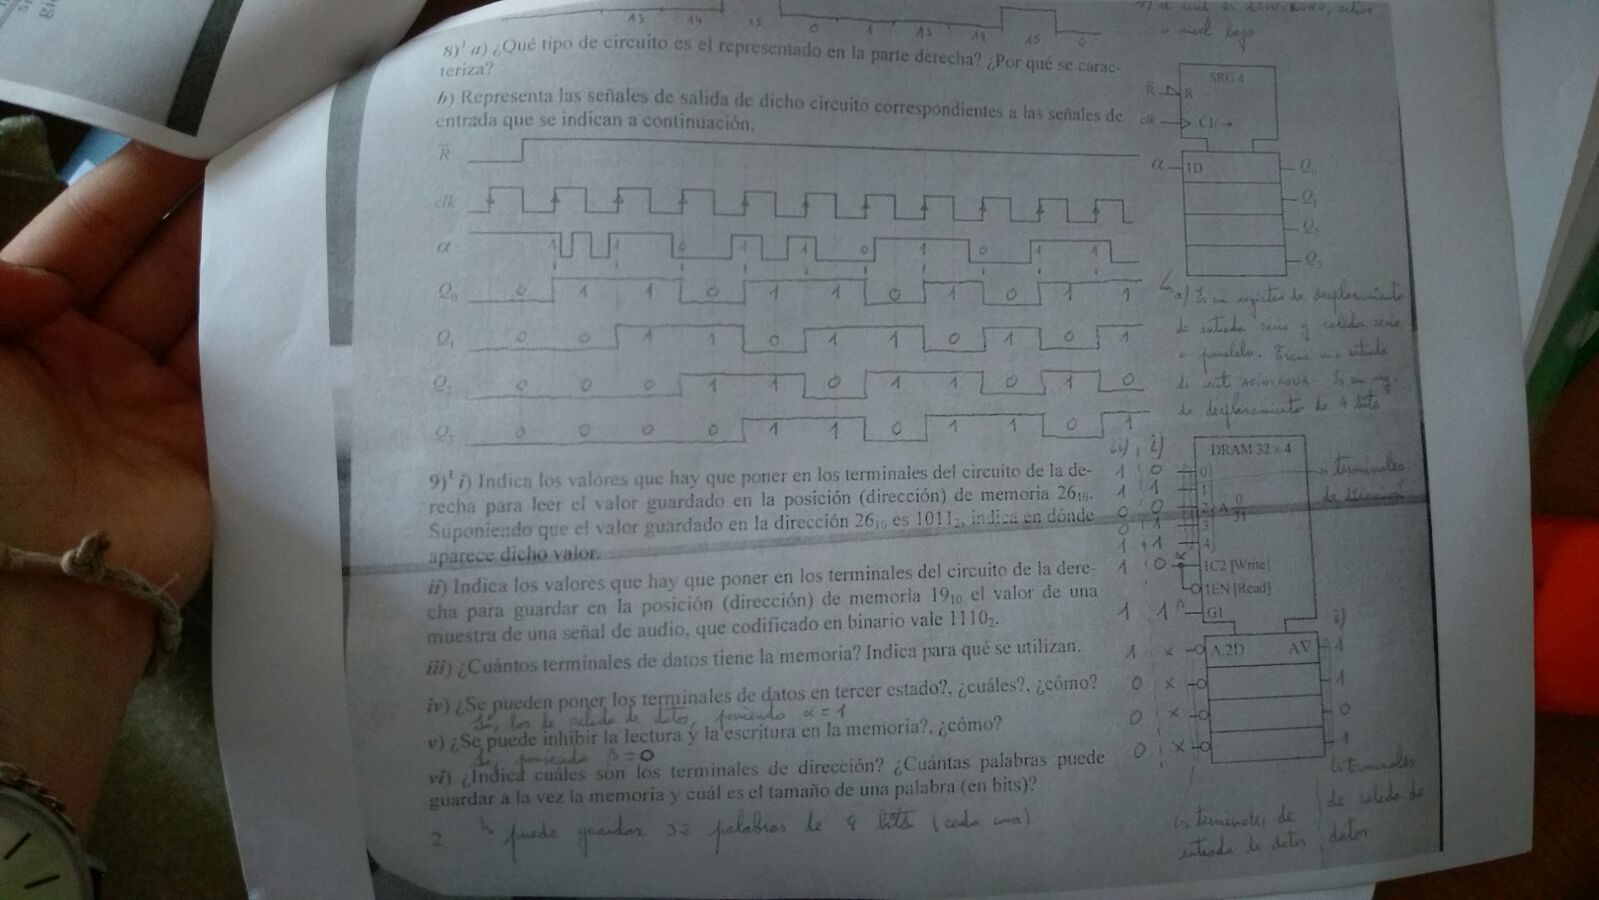 13 14 15 0 1 13 14 15 0
o nivel bajo
8)¹ a) ¿Qué tipo de circuito es el representado en la parte derecha? ¿Por qué se carac-
teriza?
b) Representa las señales de salida de dicho circuito correspondientes a las señales de
entrada que se indican a continuación.
SRG 4
R R
clk C1/→
α 1D Q₀
Q₁
Q₂
Q₃
R
clk
α 1 1 0 1 1 0 1 0 1 1
Q₀ 0 1 1 0 1 1 0 1 0 1 1
Q₁ 0 0 1 1 0 1 1 0 1 0 1
Q₂ 0 0 0 1 1 0 1 1 0 1 0
Q₃ 0 0 0 0 1 1 0 1 1 0 1
a) Es un registro de desplazamiento
de entrada serie y salida serie
o paralelo. Tiene una entrada
de reset ASÍNCRONA. Es un reg.
de desplazamiento de 4 bits
9)¹ i) Indica los valores que hay que poner en los terminales del circuito de la de-
recha para leer el valor guardado en la posición (dirección) de memoria 26₁₀.
Suponiendo que el valor guardado en la dirección 26₁₀ es 1011₂, indica en dónde
aparece dicho valor.
ii) Indica los valores que hay que poner en los terminales del circuito de la dere-
cha para guardar en la posición (dirección) de memoria 19₁₀ el valor de una
muestra de una señal de audio, que codificado en binario vale 1110₂.
iii) ¿Cuántos terminales de datos tiene la memoria? Indica para qué se utilizan.
iv) ¿Se pueden poner los terminales de datos en tercer estado?, ¿cuáles?, ¿cómo?
Sí, los de salida de datos, poniendo α = 1
v) ¿Se puede inhibir la lectura y la escritura en la memoria?, ¿cómo?
Sí, poniendo β = 0
vi) ¿Indica cuáles son los terminales de dirección? ¿Cuántas palabras puede
guardar a la vez la memoria y cuál es el tamaño de una palabra (en bits)?
2
↳ puede guardar 32 palabras de 4 bits (cada una)
ii) i) DRAM 32 x 4
1 0 0 terminales
1 1 1 de dirección
0 0 2 A 0/31
0 1 3
1 1 4
1 0 α 1C2 [Write]
1EN [Read]
1 1 β G1
i)
1 x A,2D A∇ 1
0 x 1
0 x 0
0 x 1
↳ terminales
de salida de
datos
↳ terminales de
entrada de datos